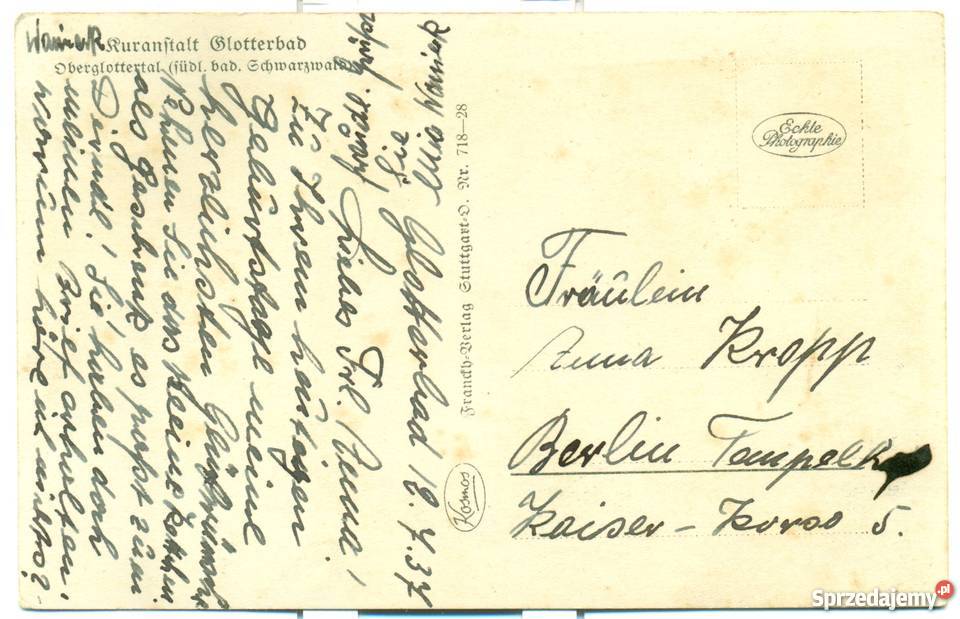 Kuranstalt Glotterbad
Oberglottertal (südl. bad. Schwarzwald)
Glotterbad 18. 7. 37
Liebes Frl. Anna!
Zu Ihrem heutigen
Geburtstage meine
herzlichsten Glückwünsche
Nehmen Sie das kleine Kettchen
als Geschenk es passt zum
Dirndl! Sie haben doch
meinen Brief erhalten,
warum höre ich nichts?
Franckh-Verlag Stuttgart-O. Nr. 718—28
Kosmos
Echte
Photographie
Fräulein
Anna Kropp
Berlin Tempelh
Kaiser-Korso 5.
Sprzedajemy.pl